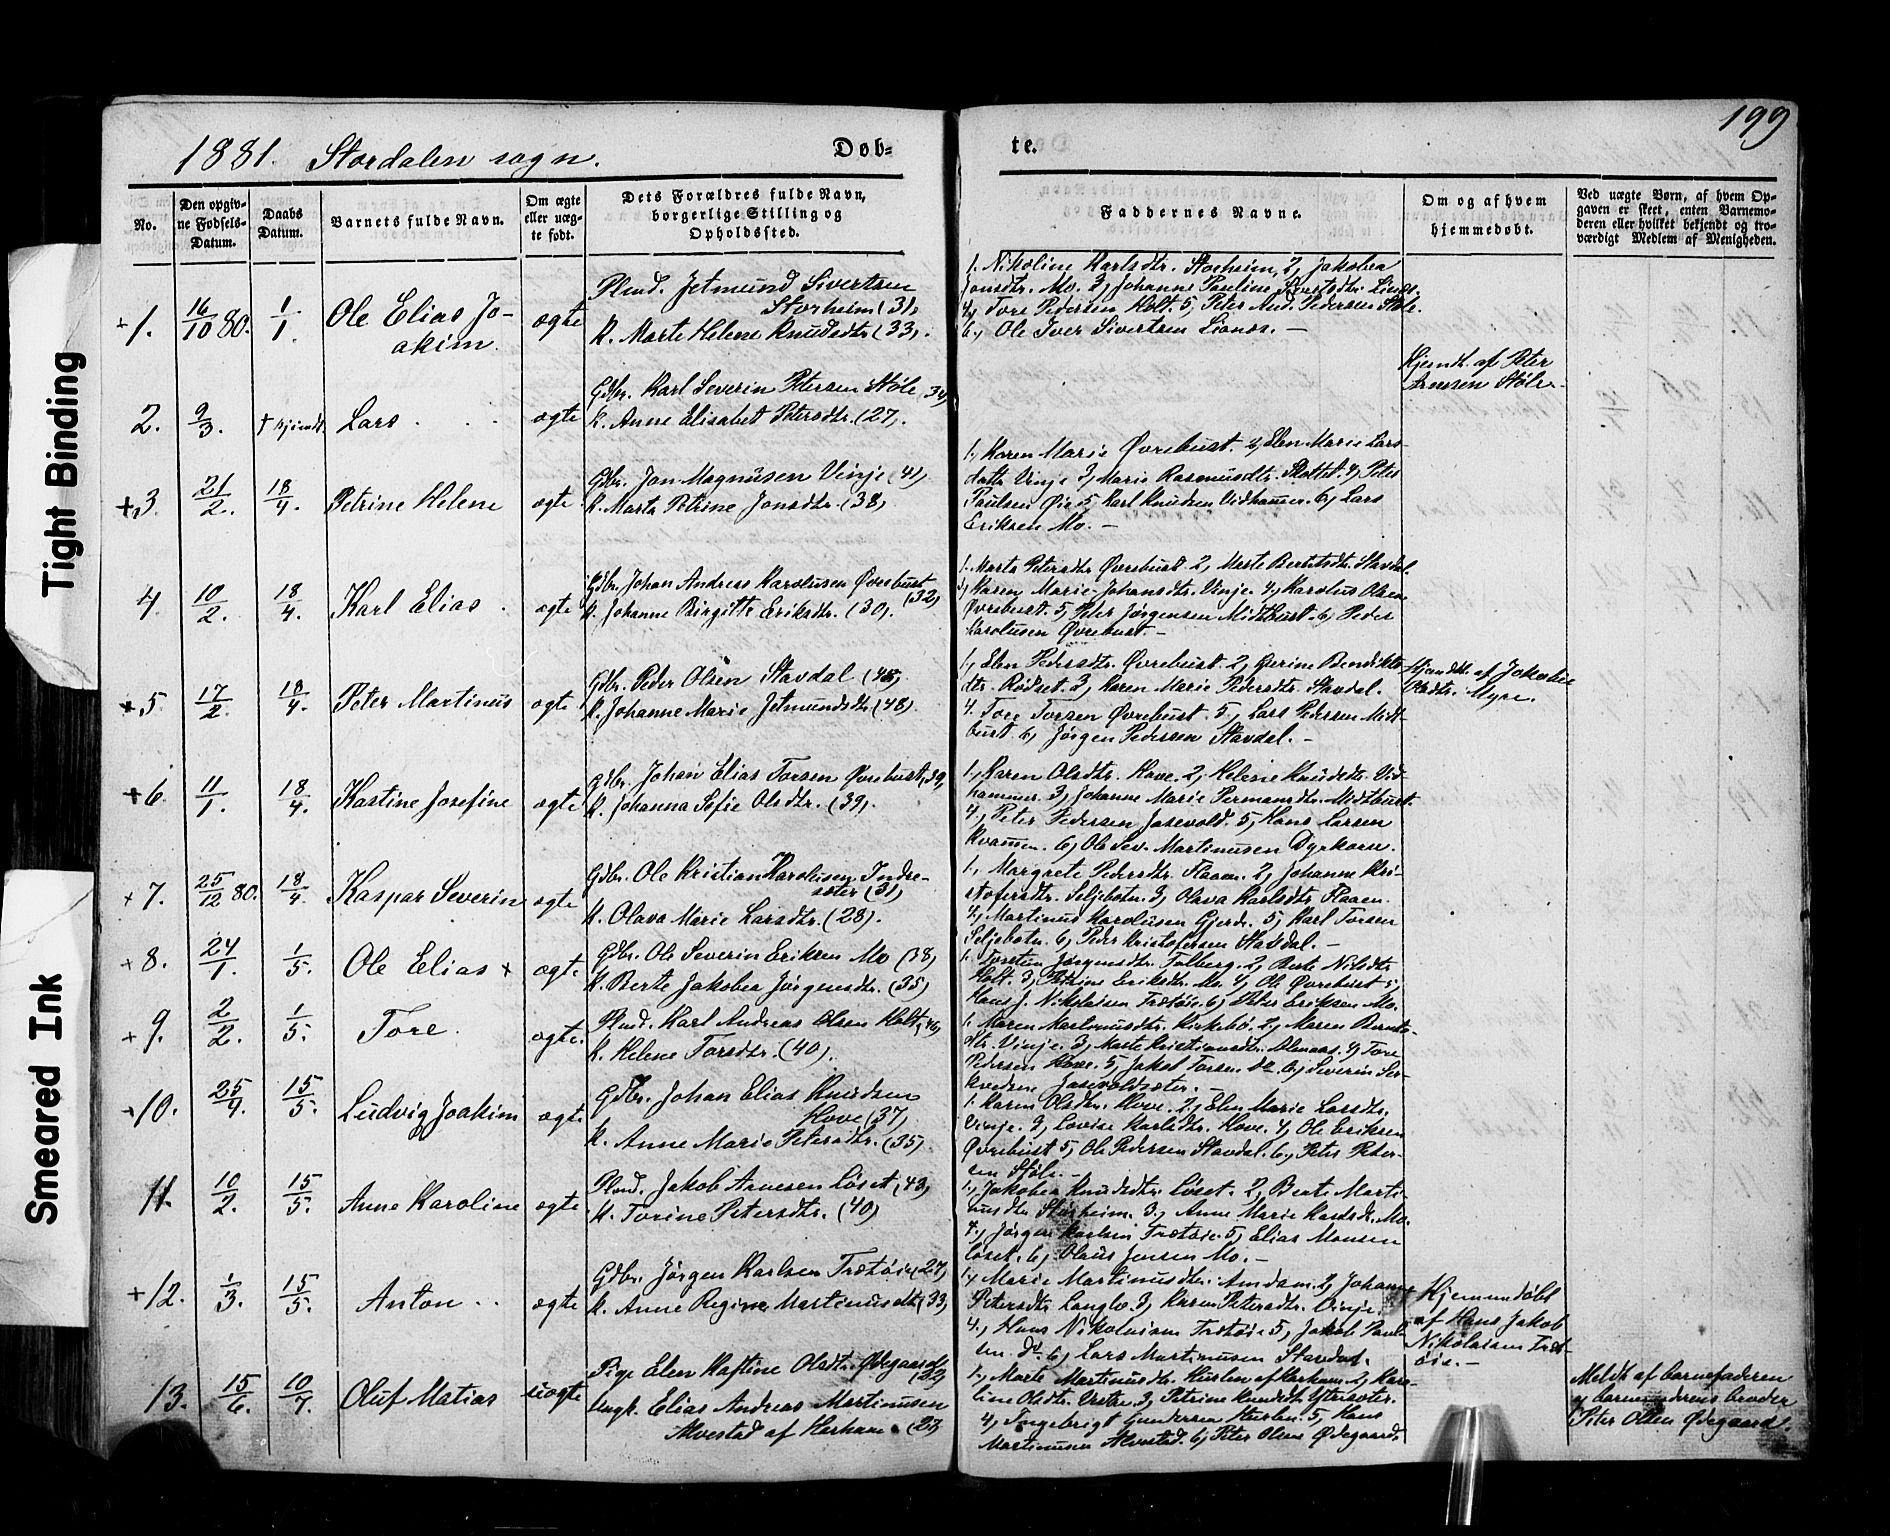 199
1881. Stordalen sogn.
Døb-
te.
No.
Den opgiv-
ne Fødsels-
Datum.
Daabs
Datum.
Barnets fulde Navn.
Om ægte
eller uæg-
te født.
Dets Forældres fulde Navn,
borgerlige Stilling og
Opholdssted.
Faddernes Navne.
Om og af hvem
hjemmedøbt.
Ved uægte Børn, af hvem Op-
gaven er skeet, enten Barnemo-
deren eller hvilket bekjendt og tro-
værdigt Medlem af Menigheden.
+1. 16/10 80. 1/1. Ole Elias Jo-
akim.
ægte
Plmd. Jetmund Sivertsen
Storheim (31),
K. Marte Helene Knudsdtr. (33).
1. Nikoline Karlsdtr. Storheim, 2, Jakobea
Jonsdtr. Mo. 3, Johanne Pauline Sivertsdtr.
4, Tore Pedersen Holt. 5, Peter And. Pedersen Støle.
6, Ole Iver Sivertsen
2. 9/3. † hjemdt. Lars
ægte
Gdbr. Karl Severin Petersen Støle (34),
K. Anne Elisabet Petersdtr. (27).
Hjemdt. af Peter
Arnesen Støle.
+3. 21/2. 18/4. Petrine Helene
ægte
Gdbr. Jon Magnusen Vinje (41),
K. Marta Petrine Jonsdtr. (38),
1, Karen Marie Øvrebust. 2, Elen Marie Lars-
datter Vinje 3, Marie Rasmusdtr. 4, Peter
Paulsen Øie 5, Karl Knudsen Vidhammer. 6, Lars
Eriksen Mo. –
4. 10/2. 18/4. Karl Elias
ægte
Gdbr. Johan Andreas Karolusen Øvrebust
(32),
K. Johanne Birgitte Eriksdtr. (30).
1. Marta Petersdtr Øvrebust 2, Marte Stavdal.
3, Karen Marie Johansdtr. Vinje. 4, Karolus Olsen
Øvrebust. 5, Peter Jørgensen Midtbust. 6, Peder
Karolusen Øvrebust. –
+5. 17/2. 18/4. Peter Martinus
ægte
Gdbr. Peder Olsen Stavdal (45),
K. Johanne Marie Jetmundsdtr. (48).
1, Elen Pedersdtr. Øvrebust. 2, Gurine Bendikts-
dtr. Rødset. 3, Karen Marie Pedersdtr. Stavdal.
4. Tore Torsen Øvrebust. 5, Lars Pedersen Midt-
bust. 6, Jørgen Pedersen Stavdal. –
Hjemdt. af Jakobie
Olsdtr. Myre.
+6. 11/1. 18/4. Kastine Josefine
ægte
Gdbr. Johan Elias Torsen Øvrebust, (39),
K. Johanna Sofie Olsdtr. (39).
1, Karen Olsdtr. Hove. 2, Helene Knudsdtr. Vid-
hammer. 3, Johanne Marie Midtbust.
4, Peter Pedersen Jasevold. 5, Hans Larsen
Kvammen. 6, Ole Sev. Martinusen Dyrkorn.
+7. 25/12 80. 18/4. Kaspar Severin
ægte
Gdbr. Ole Kristian Karolusen Indre-
sæter (31),
K. Olava Marie Larsdtr. (28).
1, Margrete Pedersdtr. Flaaen. 2, Johanne Kri-
stofersdtr. Seljebotn. 3, Olava Karlsdtr. Flaaen.
4, Martinus Karolusen Gjerde. 5, Karl Torsen
Seljebotn. 6, Peder Kristofersen Stavdal. –
+8. 24/1. 1/5. Ole Elias +
ægte
Gdbr. Ole Severin Eriksen Mo (38),
K. Berte Jakobea Jørgensdtr. (35)
1. Jørgensdtr. 2, Berte Nilsdtr
Holt. 3, Petrine Eriksdtr. Mo. 4, Ole Øvrebust 5,
Hans J. Nikolaisen Trætøie. 6, Peter Eriksen Mo.
+9. 2/2. 1/5. Tore.
ægte.
Plmd. Karl Andreas Olsen Holt, (46),
K. Helene Torsdtr. (40).
1. Maren Martinusdtr. Kirkebø. 2, Maren
dtr. Vinje. 3, Marte Kristiansdtr. Almaas. 4, Tore
Pedersen Hove. 5, Jakob Torsen do 6, Severin
Jasevoldsæter. –
+10. 25/4. 15/5. Ludvig Joakim
ægte
Gdbr. Johan Elias Knudsen
Hove (37),
K. Anne Marie Petersdtr. (35).
1. Karen Olsdtr. Hove. 2, Elen Marie Larsdtr.
Vinje. 3, Lovise Karlsdtr. Hove. 4, Ole Eriksen
Øvrebust 5, Ole Pedersen Stavdal. 6, Peter Peter-
sen Støle. –
11. 10/2. 15/5. Anne Karoline
ægte
Plmd. Jakob Arnesen Løset, (43),
K. Torine Petersdtr. (40)
1, Jakobea Knudsdtr. Løset. 2, Berte Marti-
nusdtr Storheim. 3, Anne Marie Mo.
4, Jørgen Karlsen Trætøie. 5, Elias Monsen
Løset. 6, Olaus Jensen Mo. –
+12. 1/3. 15/5. Anton
ægte
Gdbr. Jørgen Karlsen Trætøie, (27),
K. Anne Regine Martinusdtr. (33),
1, Marie Martinusdtr. Amdam. 2, Johanne
Petersdtr. Langlo. 3, Karen Petersdtr. Vinje.
4, Hans Nikolaisen Trætøie 5, Jakob Paul-
sen do. 6, Lars Martinusen Stavdal.
Hjemmedøbt
af Hans Jakob
Nikolaisen Træt-
øie. –
13. 15/6. 10/7. Oluf Matias
uægte
Pige Elen Kastine Olsdtr. Ødegaard,
(22),
Ungk. Elias Andreas Martinusen
Alvestad af Harham (27)
1, Marte Martinusdtr. af Harham. 2, Karo-
line Olsdtr. 3, Petrine Knudsdtr Ytresæter.
4, Ingebrigt Gundersen 5, Hans
Martinusen Alvestad. 6, Peter Olsen Ødegaard.
Meldt af barnefaderen
og barnemoderens broder
Peter Olsen Ødegaard.
Tight Binding
Smeared Ink